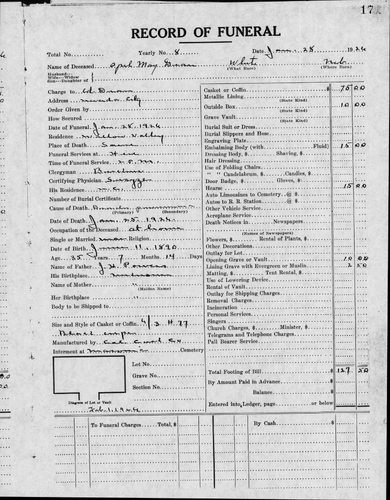 17
RECORD OF FUNERAL
Total No. Yearly No. 8 Date Jan. 28 1926
Name of Deceased May White Neb.
(What Race) (Where Born)
Husband
Wife—Widow
Son—Daughter of
Charge to
Address City
Order Given by
How Secured
Date of Funeral Jan. 28 1926
Residence Willow Valley
Place of Death Same
Funeral Services at
Time of Funeral Service
Clergyman
Certifying Physician
His Residence
Number of Burial Certificate
Cause of Death
(Primary) (Secondary)
Date of Death Jan. 25 1926
Occupation of the Deceased at home
Single or Married mar Religion
Date of Birth June 11, 1890
Age 35 Years 7 Months 14 Days
Name of Father J. H. Powers
His Birthplace
Name of Mother
(Maiden Name)
Her Birthplace
Body to be Shipped to
Size and Style of Casket or Coffin
Manufactured by
Interment at Cemetery
Lot No.
Grave No.
Section No.
Diagram of Lot or Vault
Feb. 1, 1926
Casket or Coffin 75 00
Metallic Lining
(State Kind)
Outside Box 10 00
(State Kind)
Grave Vault
(State Kind)
Burial Suit or Dress
Burial Slippers and Hose
Engraving Plate
Embalming Body (with Fluid) 15 00
Dressing Body, $ Shaving, $
Hair Dressing
Use of Folding Chairs
" " Candelabrum, $ Candles, $
Door Badge, $ Gloves, $
Hearse 15 00
Auto Limousines to Cemetery @ $
Autos to R. R. Station @ $
Other Vehicle Service
Aeroplane Service
Death Notices in Newspapers
(Names of Newspapers)
Flowers, $ Rental of Plants, $
Other Decorations
Outlay for Lot
Opening Grave or Vault 10 00
Lining Grave with Evergreen or Muslin 2 50
Matting, $ Tent Rental, $
Use of Lowering Device
Rental of Vault
Outlay for Shipping Charges
Removal Charges
Incineration
Personal Services
Singers
Church Charges, $ Minister, $
Telegrams and Telephone Charges
Pall Bearer Service
Total Footing of Bill $ 127 50
By Amount Paid in Advance
Balance
Entered into Ledger, page or below.
To Funeral Charges Total, $ By Cash $